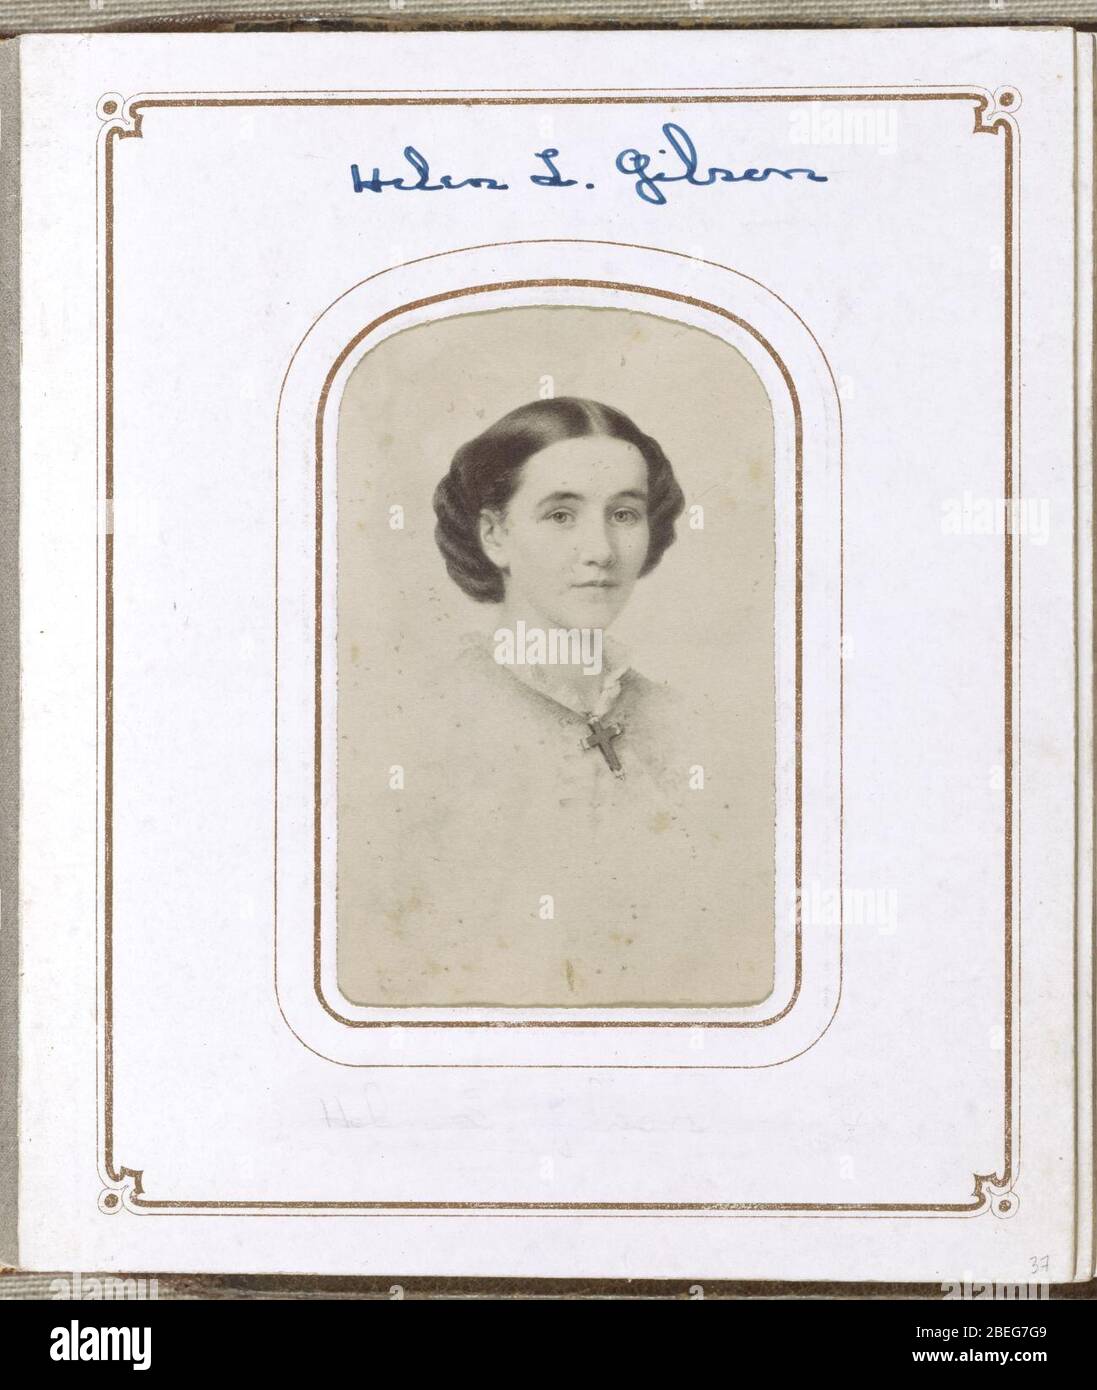 Helen L. Gilson
37
alamy
Image ID: 2BEG7G9
www.alamy.com